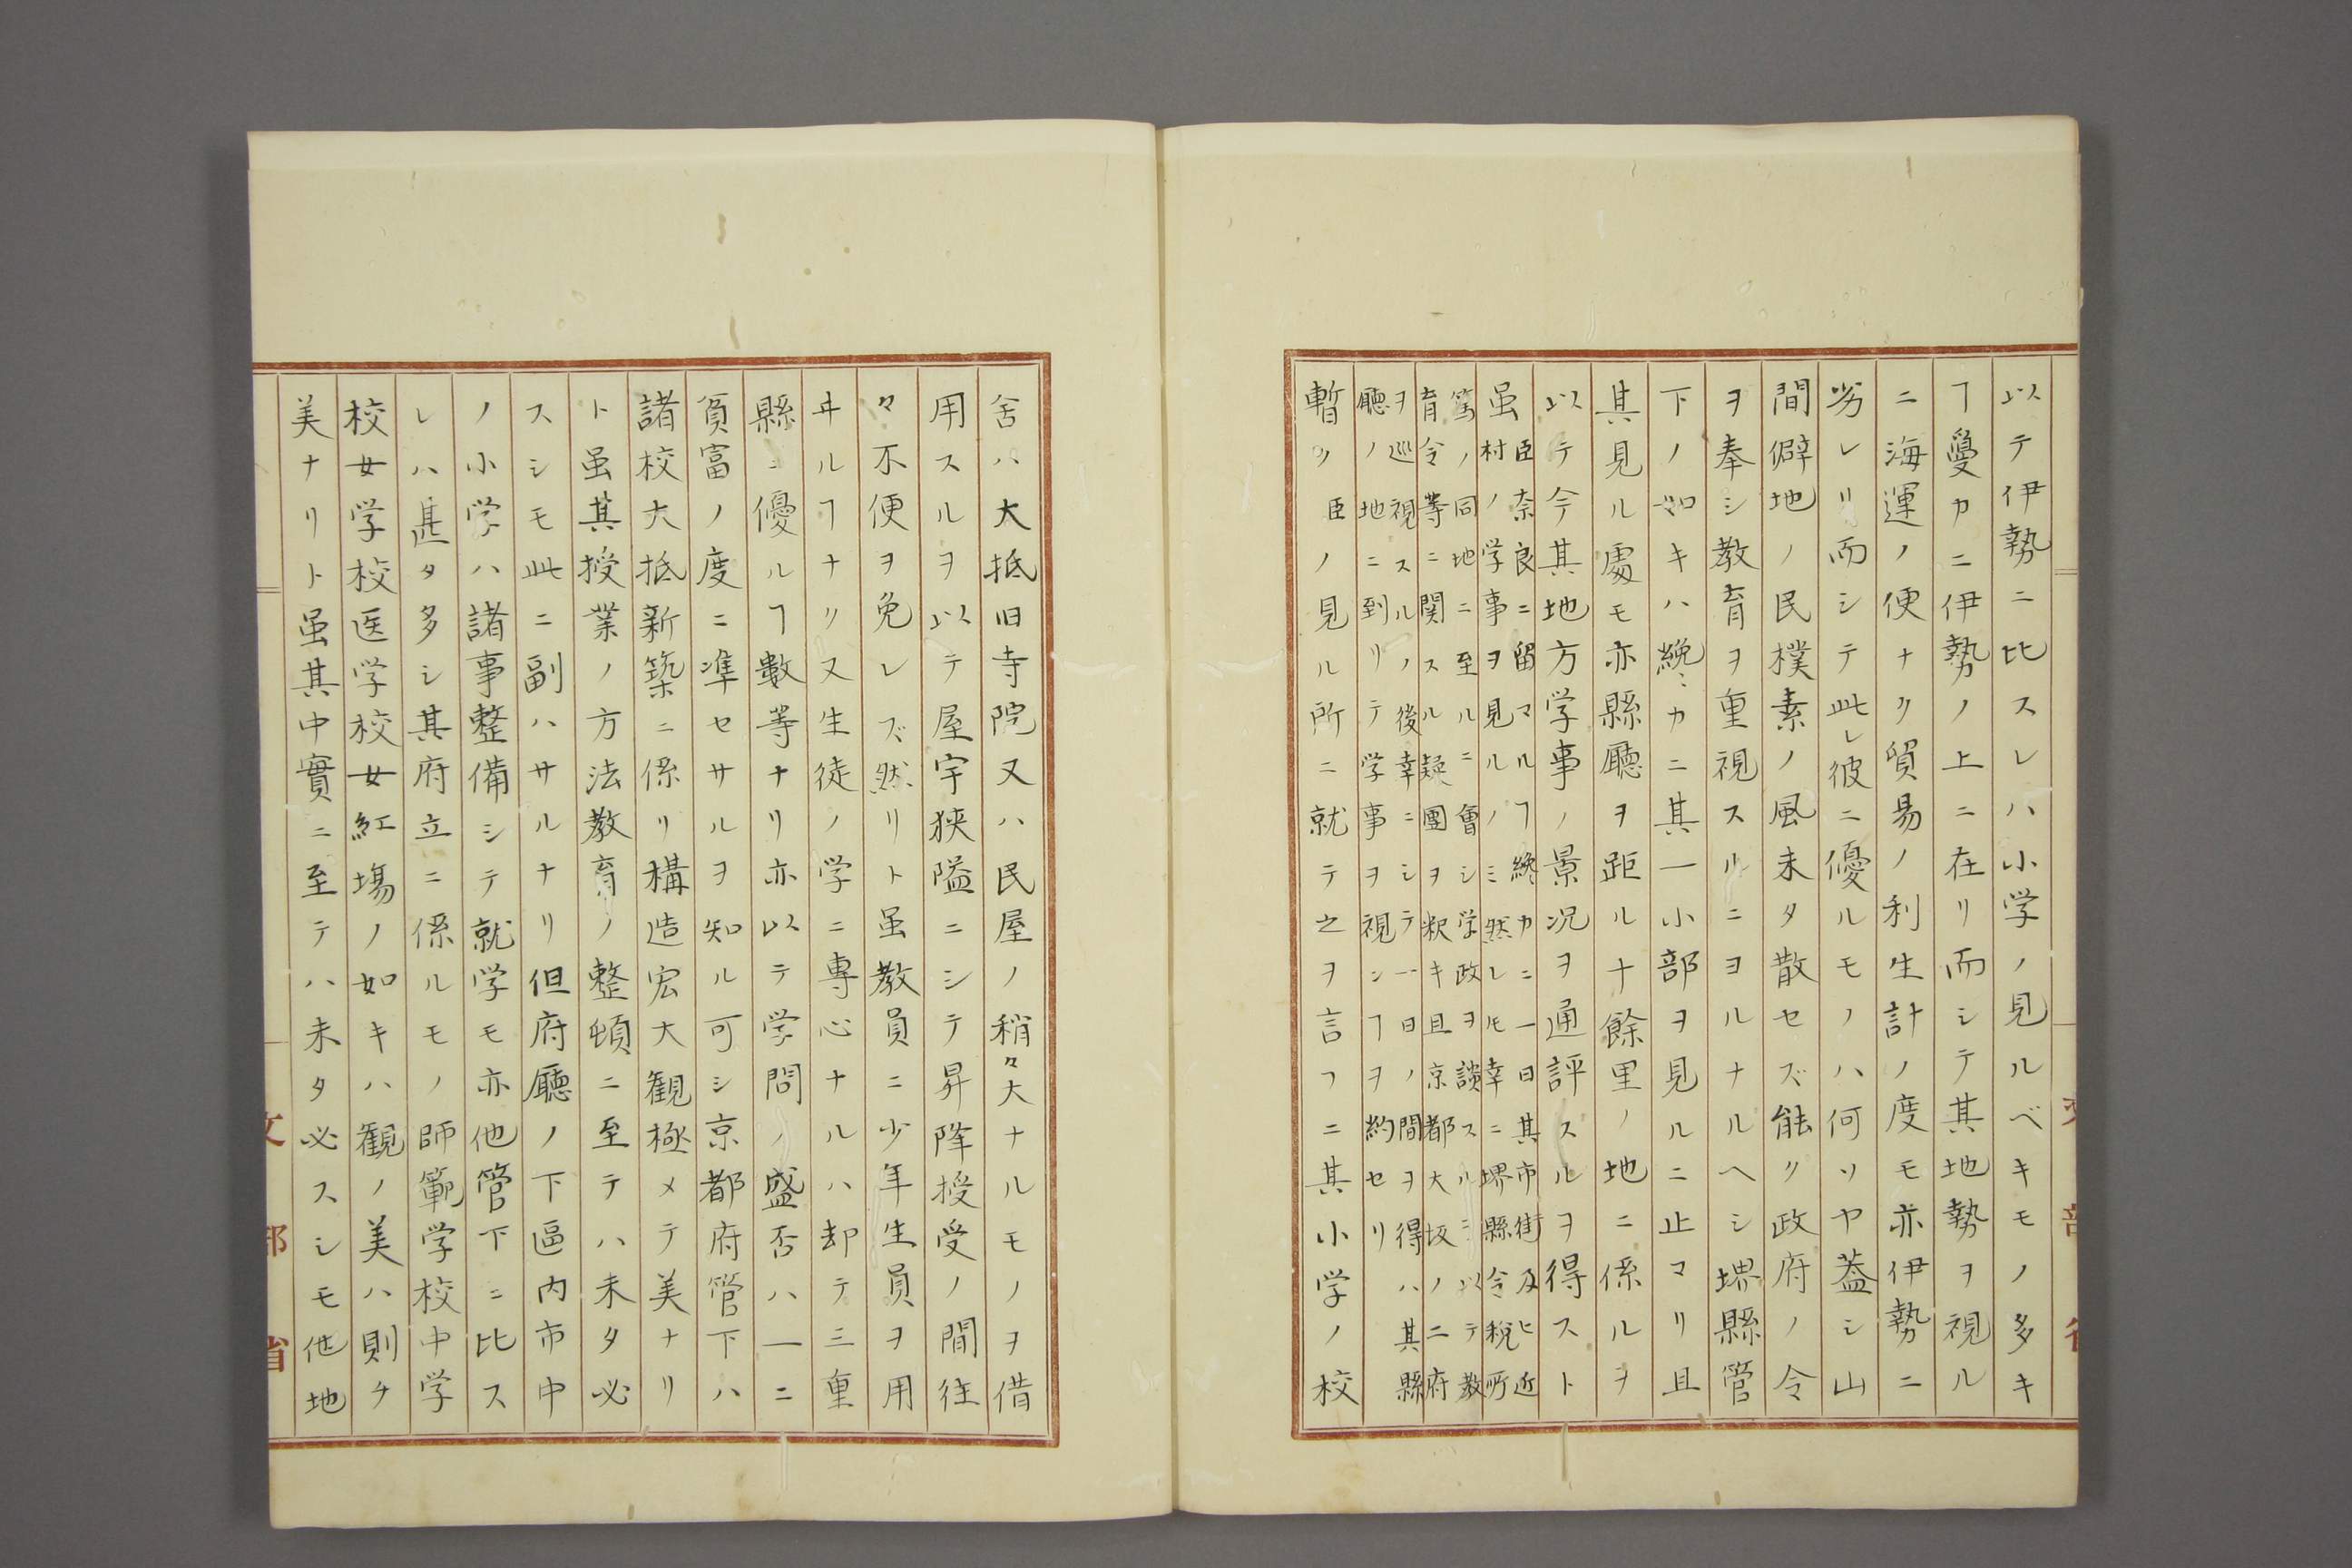 以テ伊勢ニ比スレハ小学ノ見ルベキモノ多キ
ヿ夐カニ伊勢ノ上ニ在リ而シテ其地勢ヲ視ル
ニ海運ノ便ナク貿易ノ利生計ノ度モ亦伊勢ニ
劣レリ而シテ此レ彼ニ優ルモノハ何ソヤ葢シ山
間僻地ノ民樸素ノ風未タ散セズ能ク政府ノ令
ヲ奉シ教育ヲ重視スルニヨルナルヘシ堺縣管
下ノ如キハ纔ニカニ其一小部ヲ見ルニ止マリ且
其見ル處モ亦縣廳ヲ距ル十餘里ノ地ニ係ルヲ
以テ今其地方学事ノ景况ヲ通評スルヲ得スト
虽
臣奈良ニ留マルヿ纔カニ一日其市街及ヒ近
村ノ学事ヲ見ルノミ然レモ幸ニ堺縣令税所
篤ノ同地ニ至ルニ會シ学政ヲ談スルニ以テ教
育令等ニ関スル疑團ヲ釈キ且京都大坂ノ二府
ヲ巡視スルノ後幸ニシテ一日ノ間ヲ得ハ其縣
廳ノ地ニ到リテ学事ヲ視ンヿヲ約セリ
暫ク臣ノ見ル所ニ就テ之ヲ言フニ其小学ノ校
舍ハ大抵旧寺院又ハ民屋ノ稍々大ナルモノヲ借
用スルヲ以テ屋宇狹隘ニシテ昇降授受ノ間往
々不便ヲ免レズ然リト虽教員ニ少年生員ヲ用
ヰルヿナク又生徒ノ学ニ專心ナルハ却テ三重
縣ニ優ルヿ數等ナリ亦以テ学問ノ盛否ハ一ニ
貧富ノ度ニ準セサルヲ知ル可シ京都府管下ハ
諸校大抵新築ニ係リ構造宏大観極メテ美ナリ
ト虽其授業ノ方法教育ノ整頓ニ至テハ未タ必
スシモ此ニ副ハサルナリ但府廳ノ下區内市中
ノ小学ハ諸事整備シテ就学モ亦他管下ニ比ス
レハ甚タ多シ其府立ニ係ルモノ師範学校中学
校女学校医学校女紅塲ノ如キハ観ノ美ハ則チ
美ナリト虽其中實ニ至テハ未タ必スシモ他地
文部省